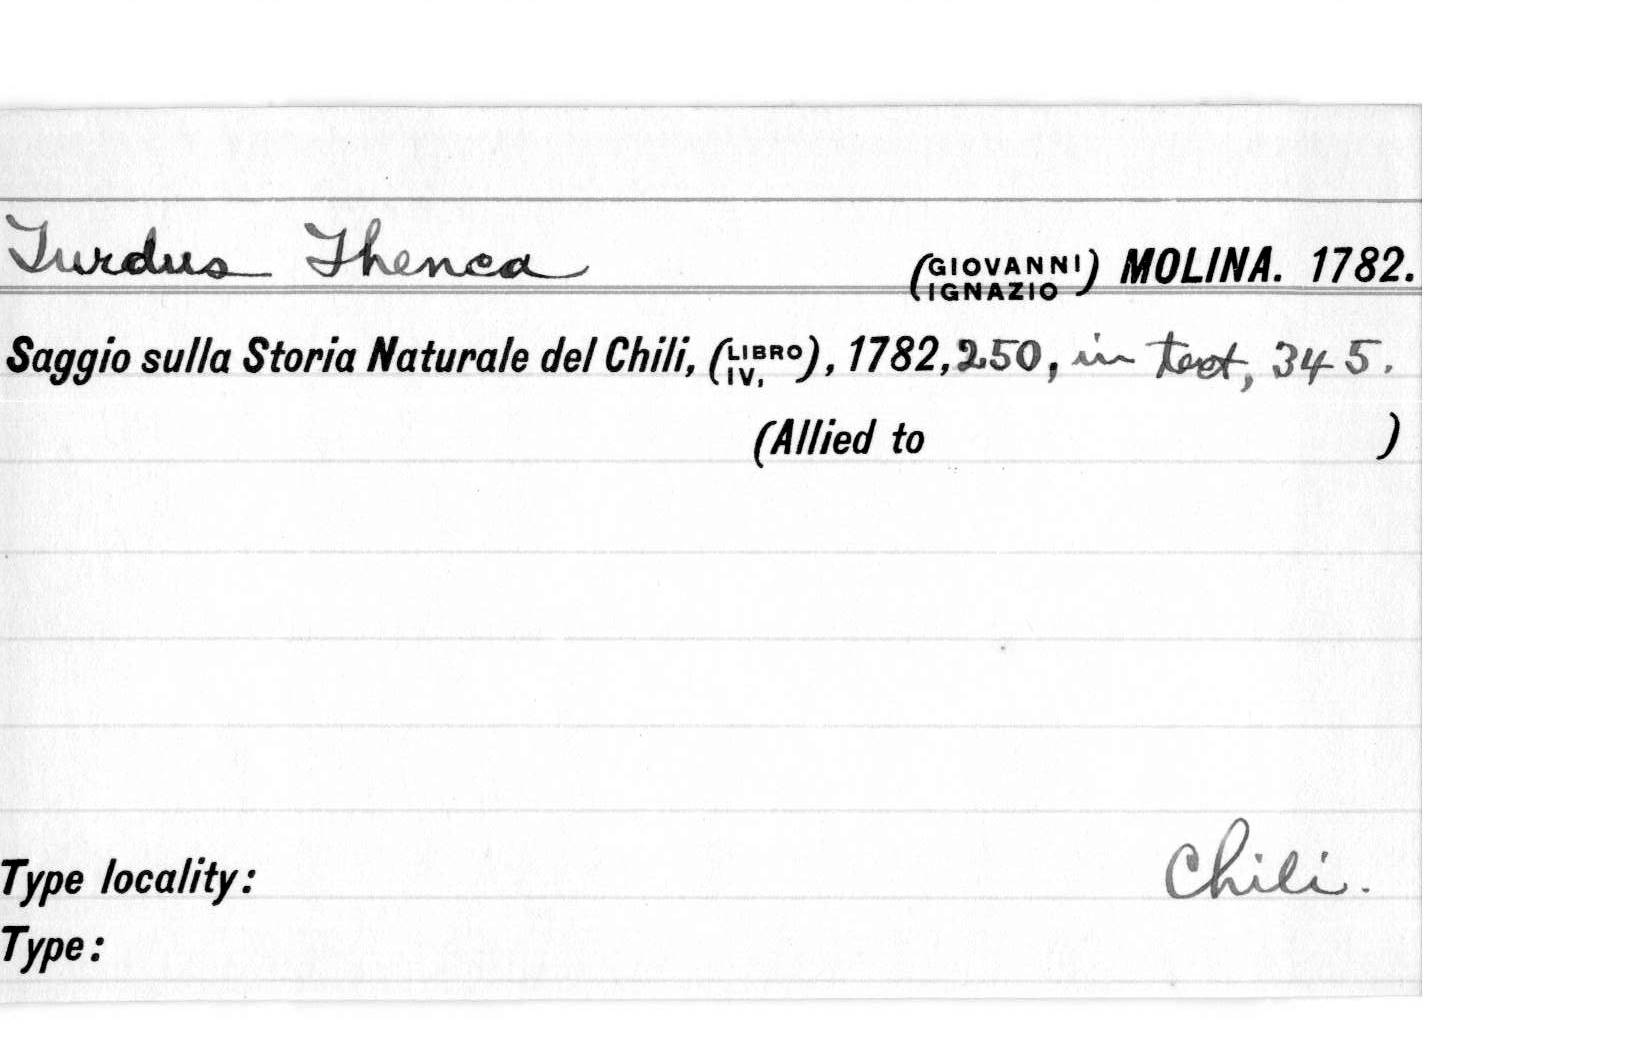 Turdus Thenca (GIOVANNI IGNAZIO) MOLINA. 1782.
Saggio sulla Storia Naturale del Chili, (LIBRO IV,), 1782, 250, in text, 345.
(Allied to )
Type locality: Chili.
Type: